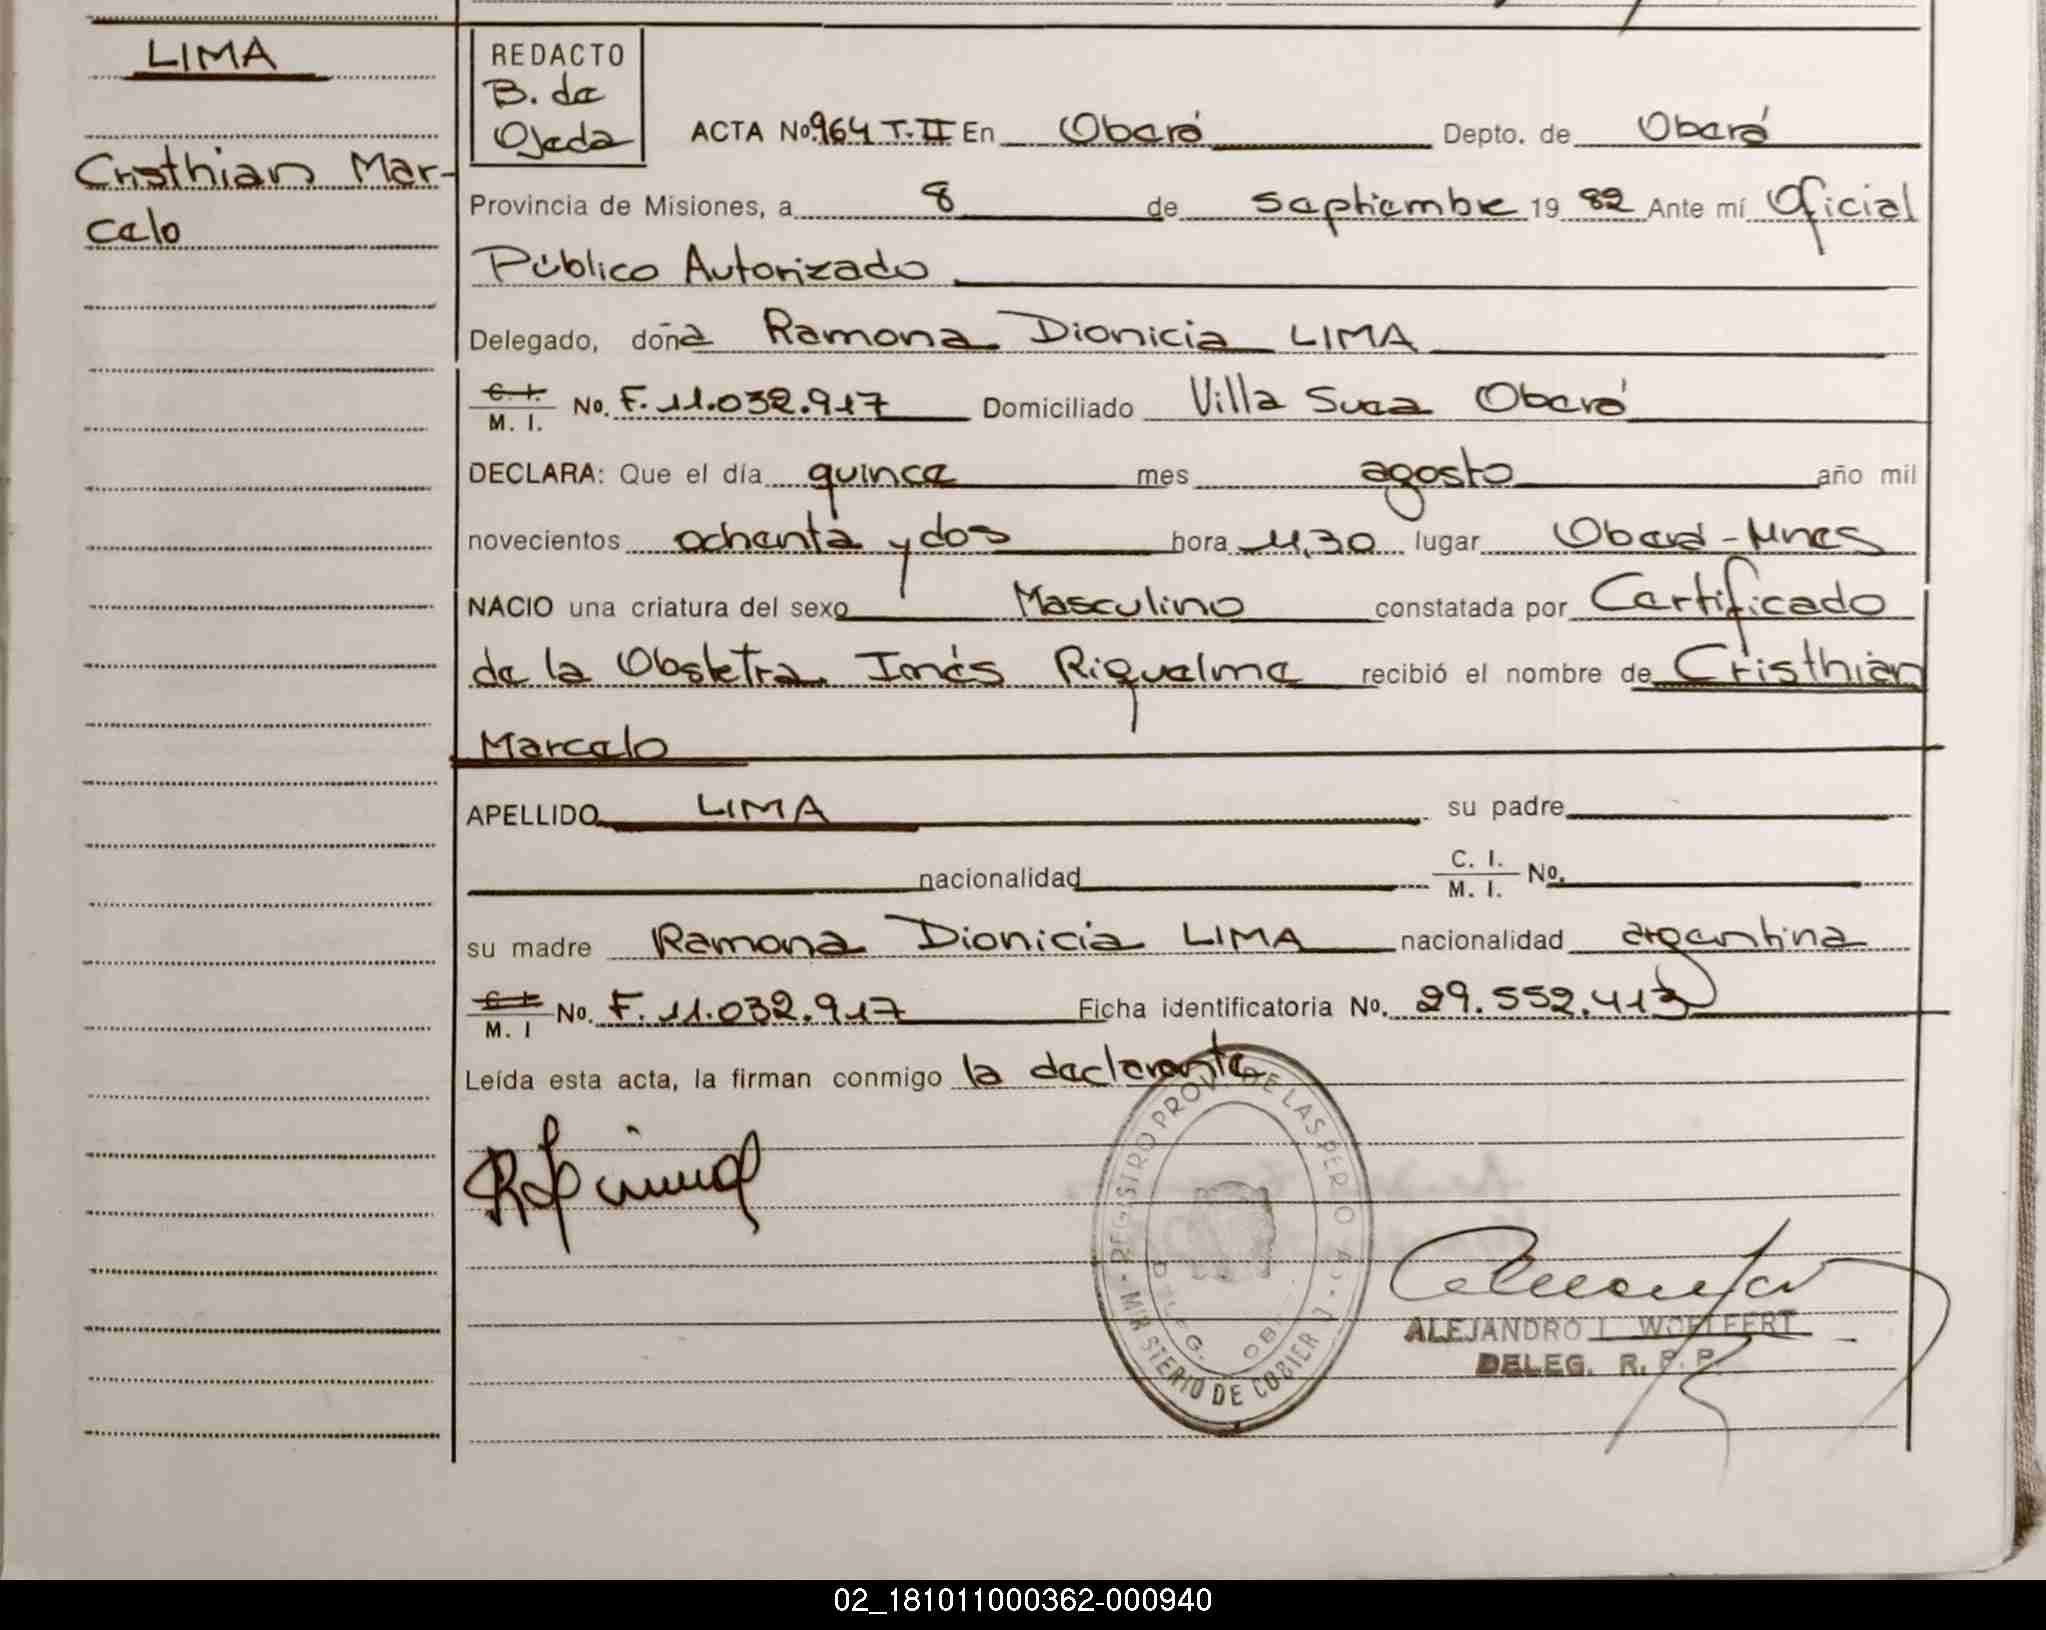 LIMA
Cristhian Mar-
celo
REDACTO
B. de
Ojeda
ACTA No. 964 T. II En Oberá Depto. de Oberá
Provincia de Misiones, a 8 de septiembre 19 82 Ante mí Oficial
Público Autorizado
Delegado, doña Ramona Dionicia LIMA
C. I.
M. I. No. F. 11.032.917 Domiciliado Villa Suea Oberá
DECLARA: Que el día quince mes agosto año mil
novecientos ochenta y dos hora 11,30 lugar Oberá - Mnes
NACIO una criatura del sexo Masculino constatada por Certificado
de la Obstetra. Inés Riquelme recibió el nombre de Cristhian
Marcelo
APELLIDO LIMA su padre
nacionalidad C. I.
M. I. No.
su madre Ramona Dionicia LIMA nacionalidad argentina
C. I.
M. I No. F. 11.032.917 Ficha identificatoria No. 29.552.413
Leída esta acta, la firman conmigo la declarante
REGISTRO PROV. DE LAS PERSO
MINISTERIO DE GOBIER
DELEG. OB
ALEJANDRO L. WOELFFERT
DELEG. R. P. P.
02_181011000362-000940